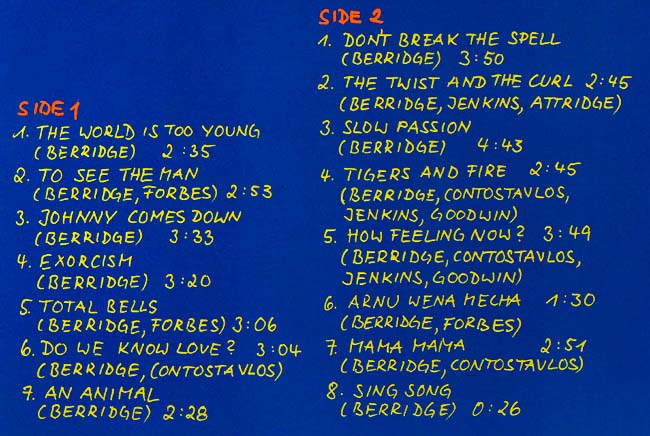 SIDE 1
1. THE WORLD IS TOO YOUNG
(BERRIDGE) 2:35
2. TO SEE THE MAN
(BERRIDGE, FORBES) 2:53
3. JOHNNY COMES DOWN
(BERRIDGE) 3:33
4. EXORCISM
(BERRIDGE) 3:20
5. TOTAL BELLS
(BERRIDGE, FORBES) 3:06
6. DO WE KNOW LOVE? 3:04
(BERRIDGE, CONTOSTAVLOS)
7. AN ANIMAL
(BERRIDGE) 2:28
SIDE 2
1. DON'T BREAK THE SPELL
(BERRIDGE) 3:50
2. THE TWIST AND THE CURL 2:45
(BERRIDGE, JENKINS, ATTRIDGE)
3. SLOW PASSION
(BERRIDGE) 4:43
4. TIGERS AND FIRE 2:45
(BERRIDGE, CONTOSTAVLOS,
JENKINS, GOODWIN)
5. HOW FEELING NOW? 3:49
(BERRIDGE, CONTOSTAVLOS,
JENKINS, GOODWIN)
6. ARNU WENA MECHA 1:30
(BERRIDGE, FORBES)
7. MAMA MAMA 2:51
(BERRIDGE, CONTOSTAVLOS)
8. SING SONG
(BERRIDGE) 0:26